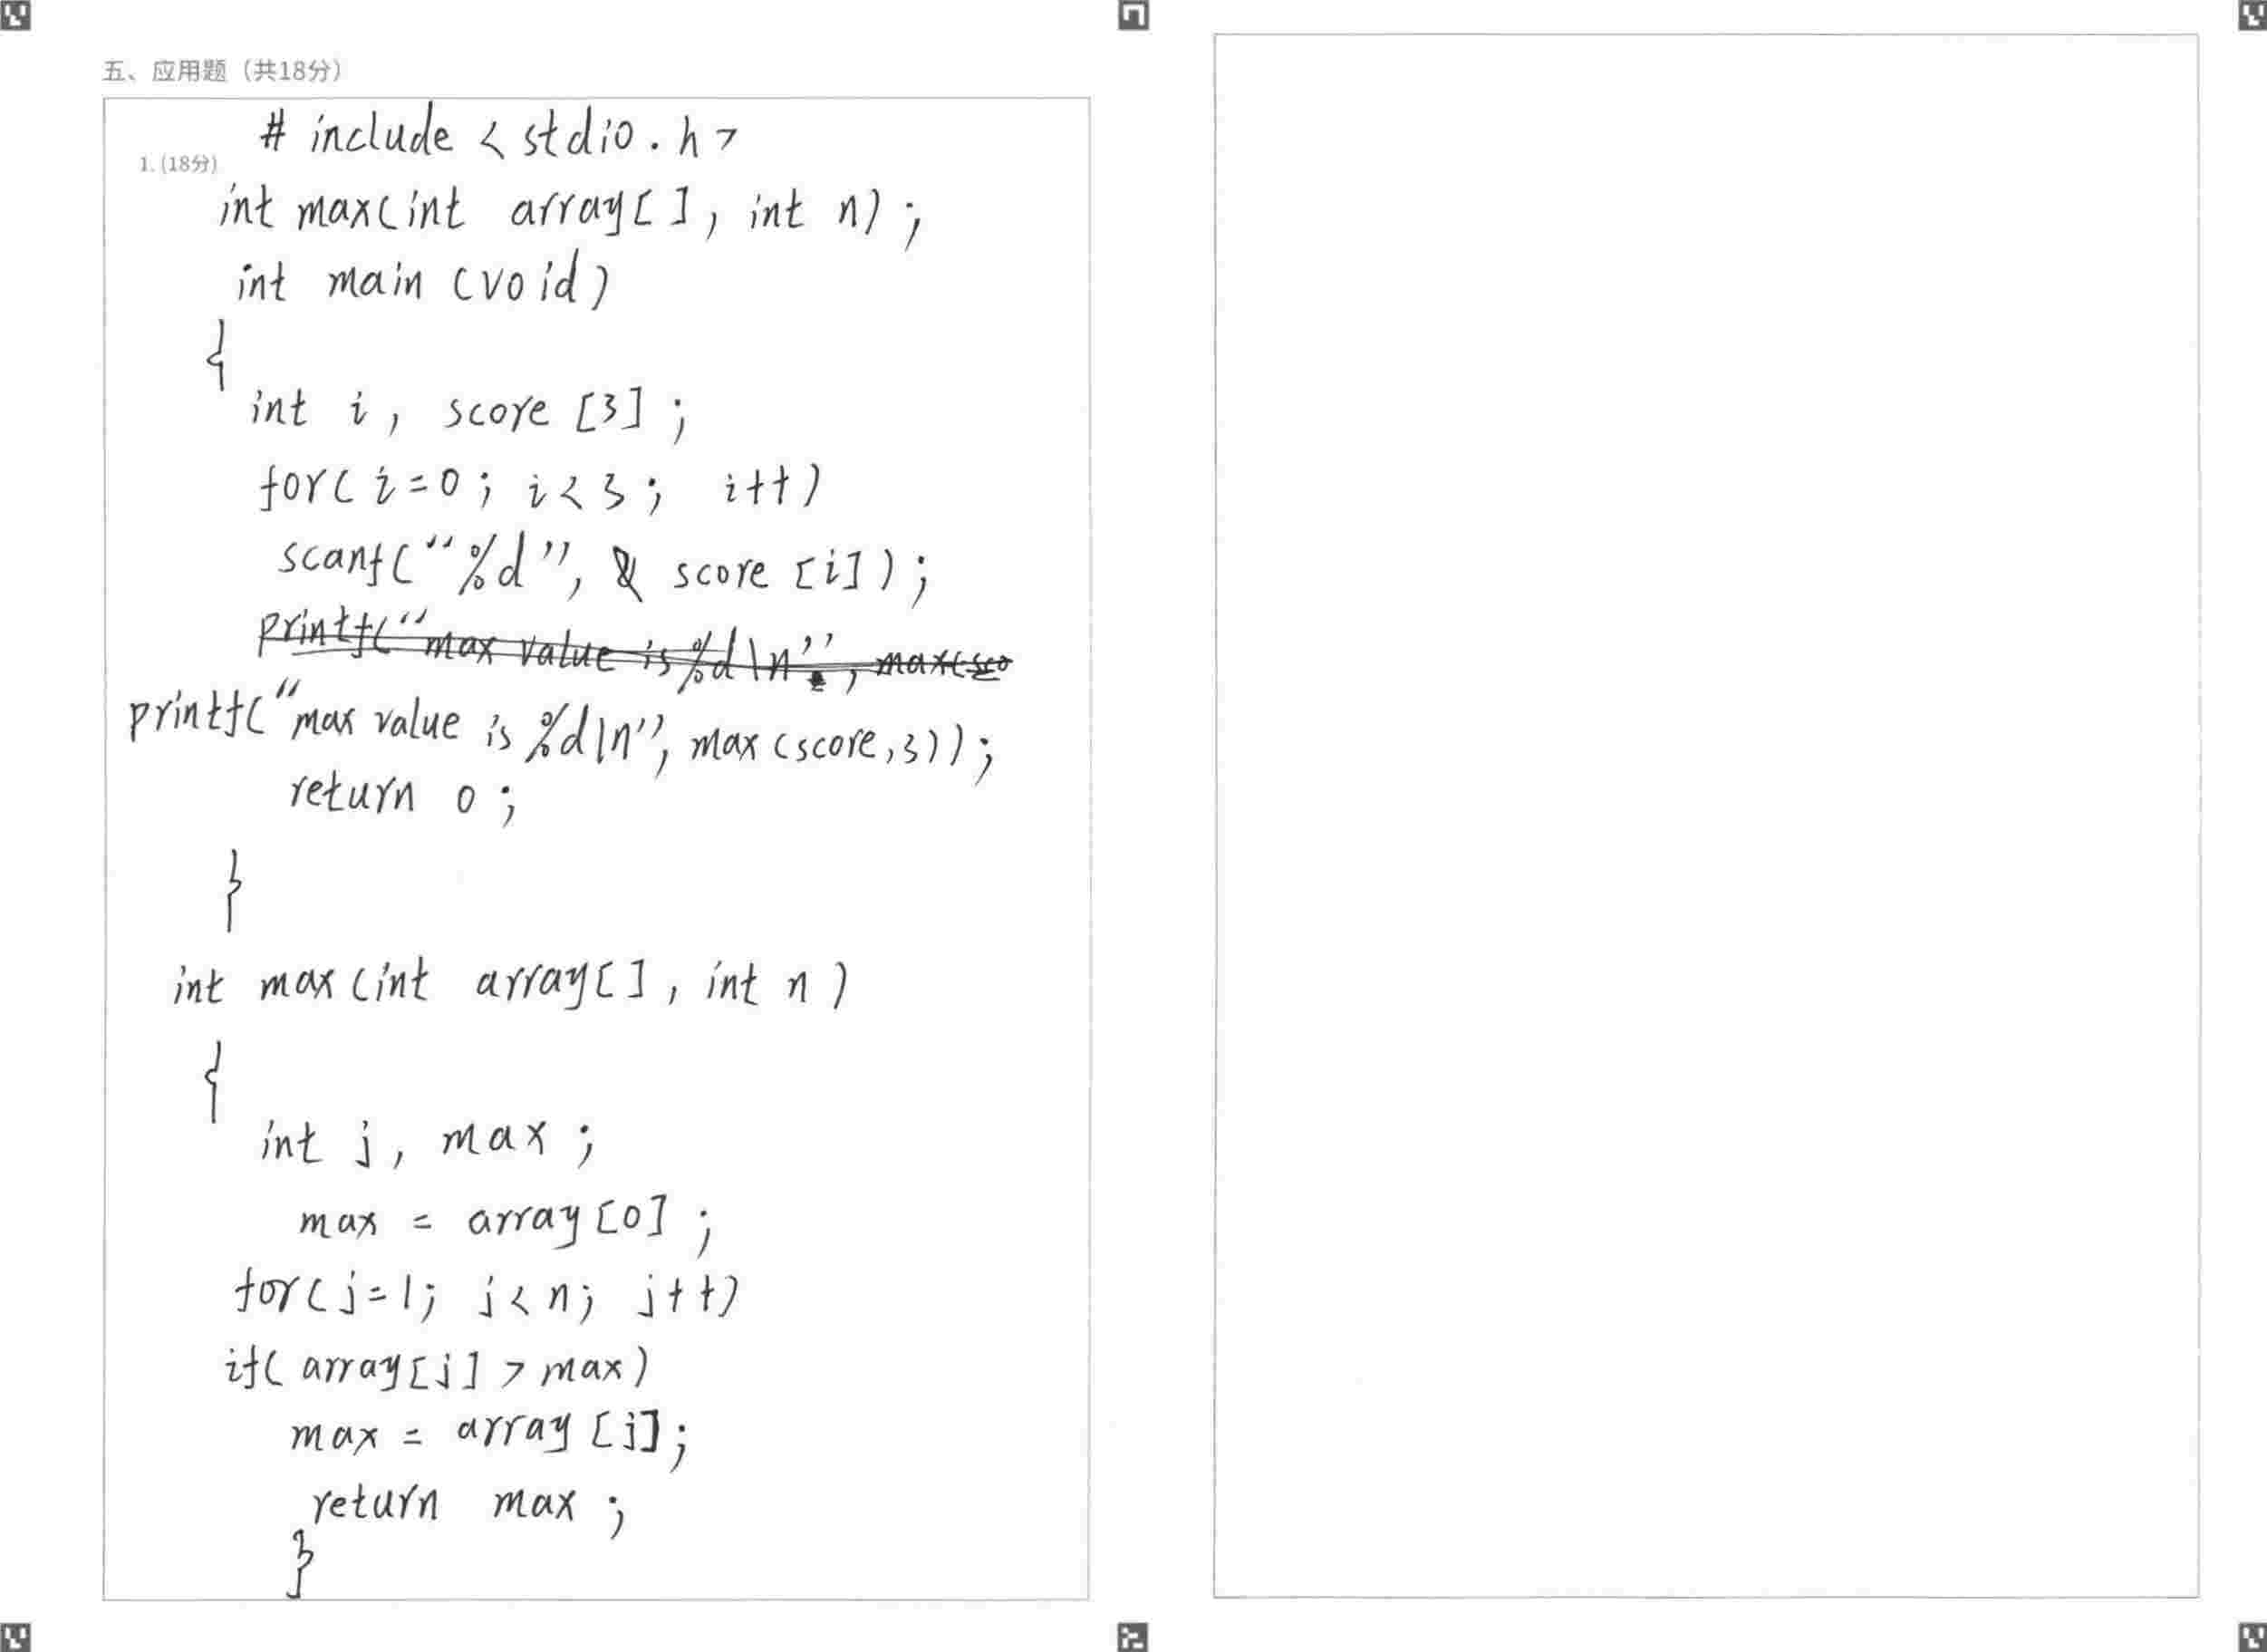 五、应用题（共18分）
# include < stdio . h >
1. (18分)
int max(int array[ ] , int n) ;
int main (void)
{
int i , score [3] ;
for( i=0 ; i<3 ; i++)
scanf("%d", & score [i] ) ;
printf("max value is %d\n", max(sco
printf("max value is %d\n", max (score,3)) ;
return 0 ;
}
int max (int array[ ] , int n )
{
int j , max ;
max = array [0] ;
for( j=1; j<n; j++)
if( array[j] > max)
max = array [j];
return max ;
}